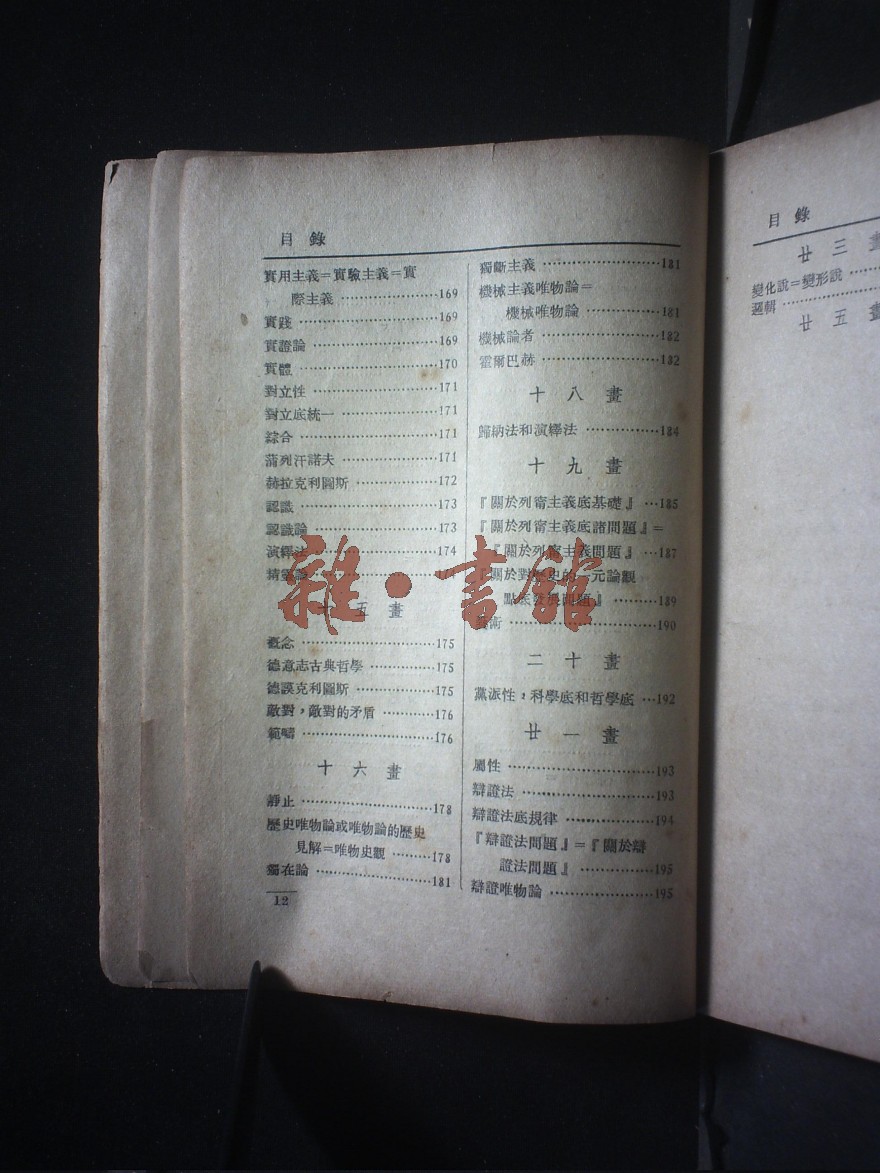 目錄
實用主義＝實驗主義＝實
際主義 ……………169
實踐 ……………169
實證論 ……………169
實體 ……………170
對立性 ……………171
對立底統一 ……………171
綜合 ……………171
蒲列汗諾夫 ……………171
赫拉克利圖斯 ……………172
認識 ……………173
認識論 ……………173
演繹法 ……………174
精靈論
十五畫
概念 ……………175
德意志古典哲學 ……………175
德謨克利圖斯 ……………175
敵對，敵對的矛盾 ……………176
範疇 ……………176
十六畫
靜止 ……………178
歷史唯物論或唯物論的歷史
見解＝唯物史觀 ………178
獨在論 ……………181
12
獨斷主義 ……………181
機械主義唯物論＝
機械唯物論 ……………181
機械論者 ……………182
霍爾巴赫 ……………182
十八畫
歸納法和演繹法 ……………184
十九畫
『關於列甯主義底基礎』 …185
『關於列甯主義底諸問題』＝
『關於列甯主義問題』 …187
『關於對歷史的一元論觀
點底發展問題』 ………189
藝術 ……………190
二十畫
黨派性：科學底和哲學底 …192
廿一畫
屬性 ……………193
辯證法 ……………193
辯證法底規律 ……………194
『辯證法問題』＝『關於辯
證法問題』 ……………195
辯證唯物論 ……………195
雜·書館
目錄
廿三畫
變化說＝變形說 ……
邏輯 ……………
廿五畫